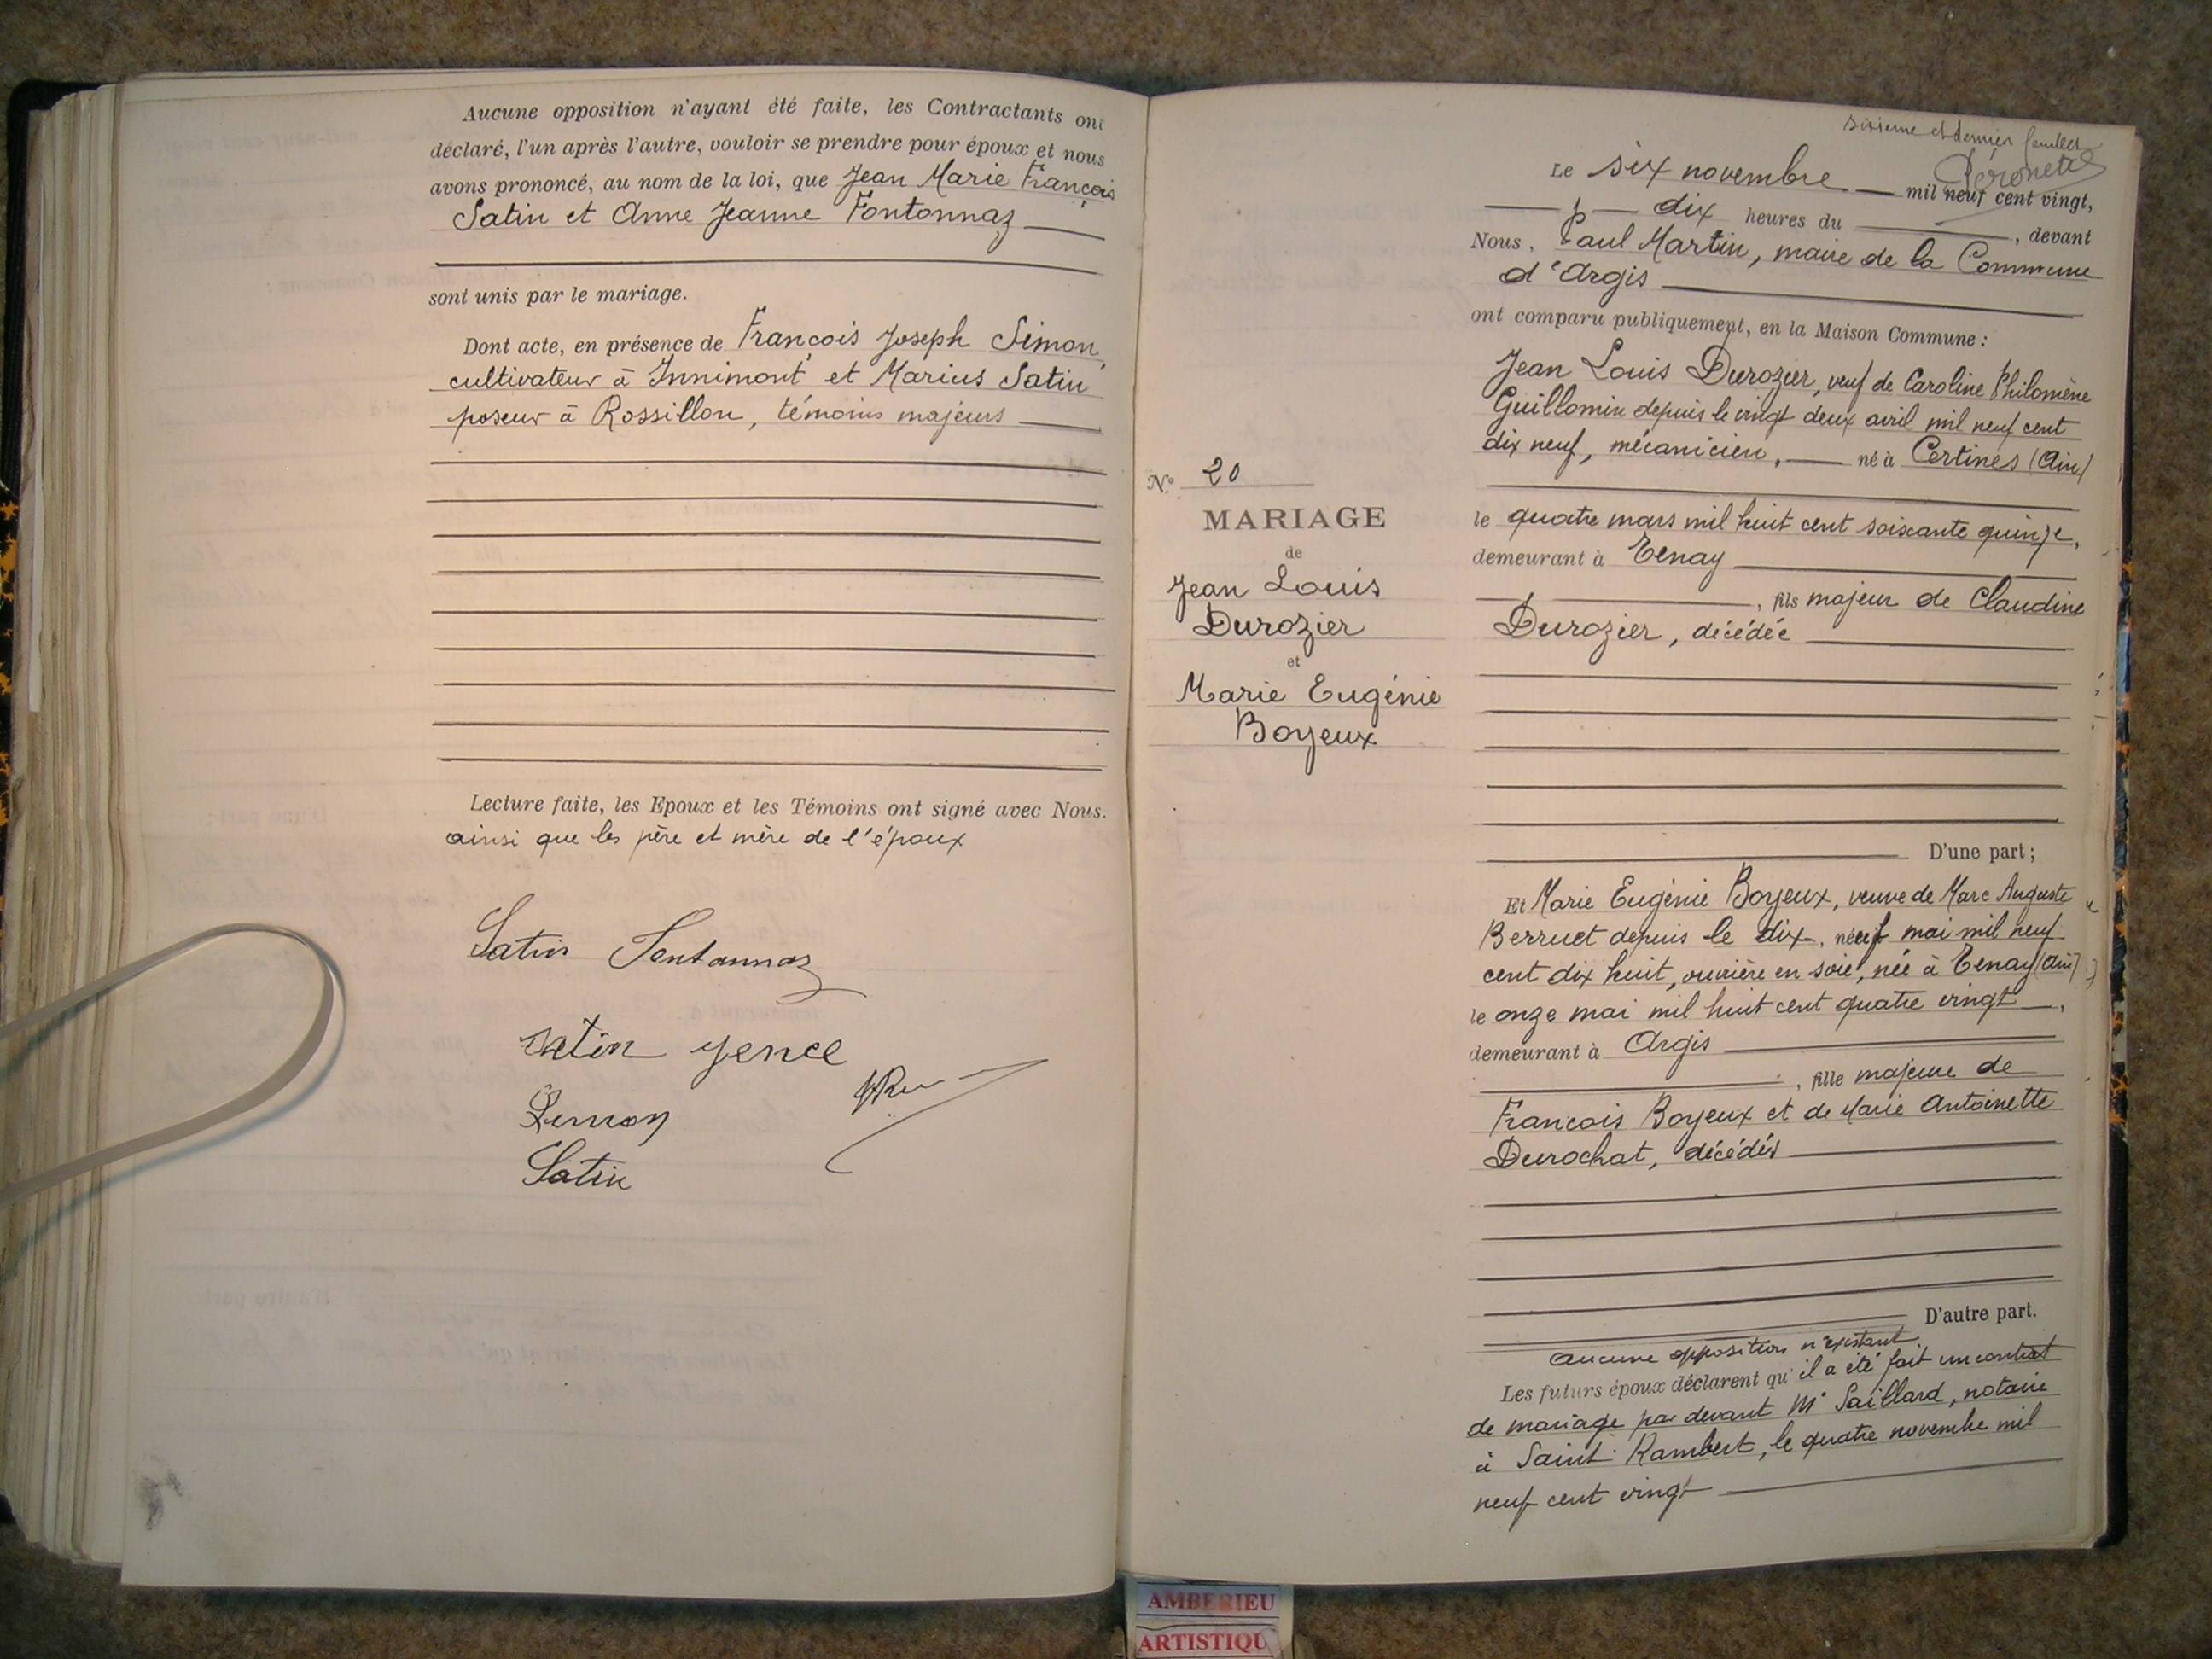 Aucune opposition n'ayant été faite, les Contractants ont
déclaré, l'un après l'autre, vouloir se prendre pour époux et nous
avons prononcé, au nom de la loi, que Jean Marie François
Satin et Anne Jeanne Fontonnaz
sont unis par le mariage.
Dont acte, en présence de François Joseph Simon,
cultivateur à Innimont et Marius Satin
poseur à Rossillon, témoins majeurs
Lecture faite, les Epoux et les Témoins ont signé avec Nous.
ainsi que les père et mère de l'époux
Satin
Satin
Satin
sixième et dernier feuillet
Le six novembre mil neuf cent vingt,
dix heures du , devant
Nous, Paul Martin, maire de la Commune
d'Argis
ont comparu publiquement, en la Maison Commune :
Jean Louis Durozier, veuf de Caroline Philomène
Guillomin depuis le vingt deux avril mil neuf cent
dix neuf, mécanicien, né à Certines (Ain)
No 20
MARIAGE
de
Jean Louis
Durozier
et
Marie Eugénie
Boyeux
le quatre mars mil huit cent soixante quinze,
demeurant à Tenay
, fils majeur de Claudine
Durozier, décédée
D'une part ;
Et Marie Eugénie Boyeux, veuve de Marc Auguste
Berruet depuis le dix neuf mai mil neuf
cent dix huit, ouvrière en soie, née à Tenay (Ain)
le onze mai mil huit cent quatre vingt,
demeurant à Argis
, fille majeure de
François Boyeux et de Marie Antoinette
Durochat, décédés
D'autre part.
Aucune opposition n'existant
Les futurs époux déclarent qu'il a été fait un contrat
de mariage par devant Me Saillard, notaire
à Saint-Rambert, le quatre novembre mil
neuf cent vingt
AMBERIEU
ARTISTIQU